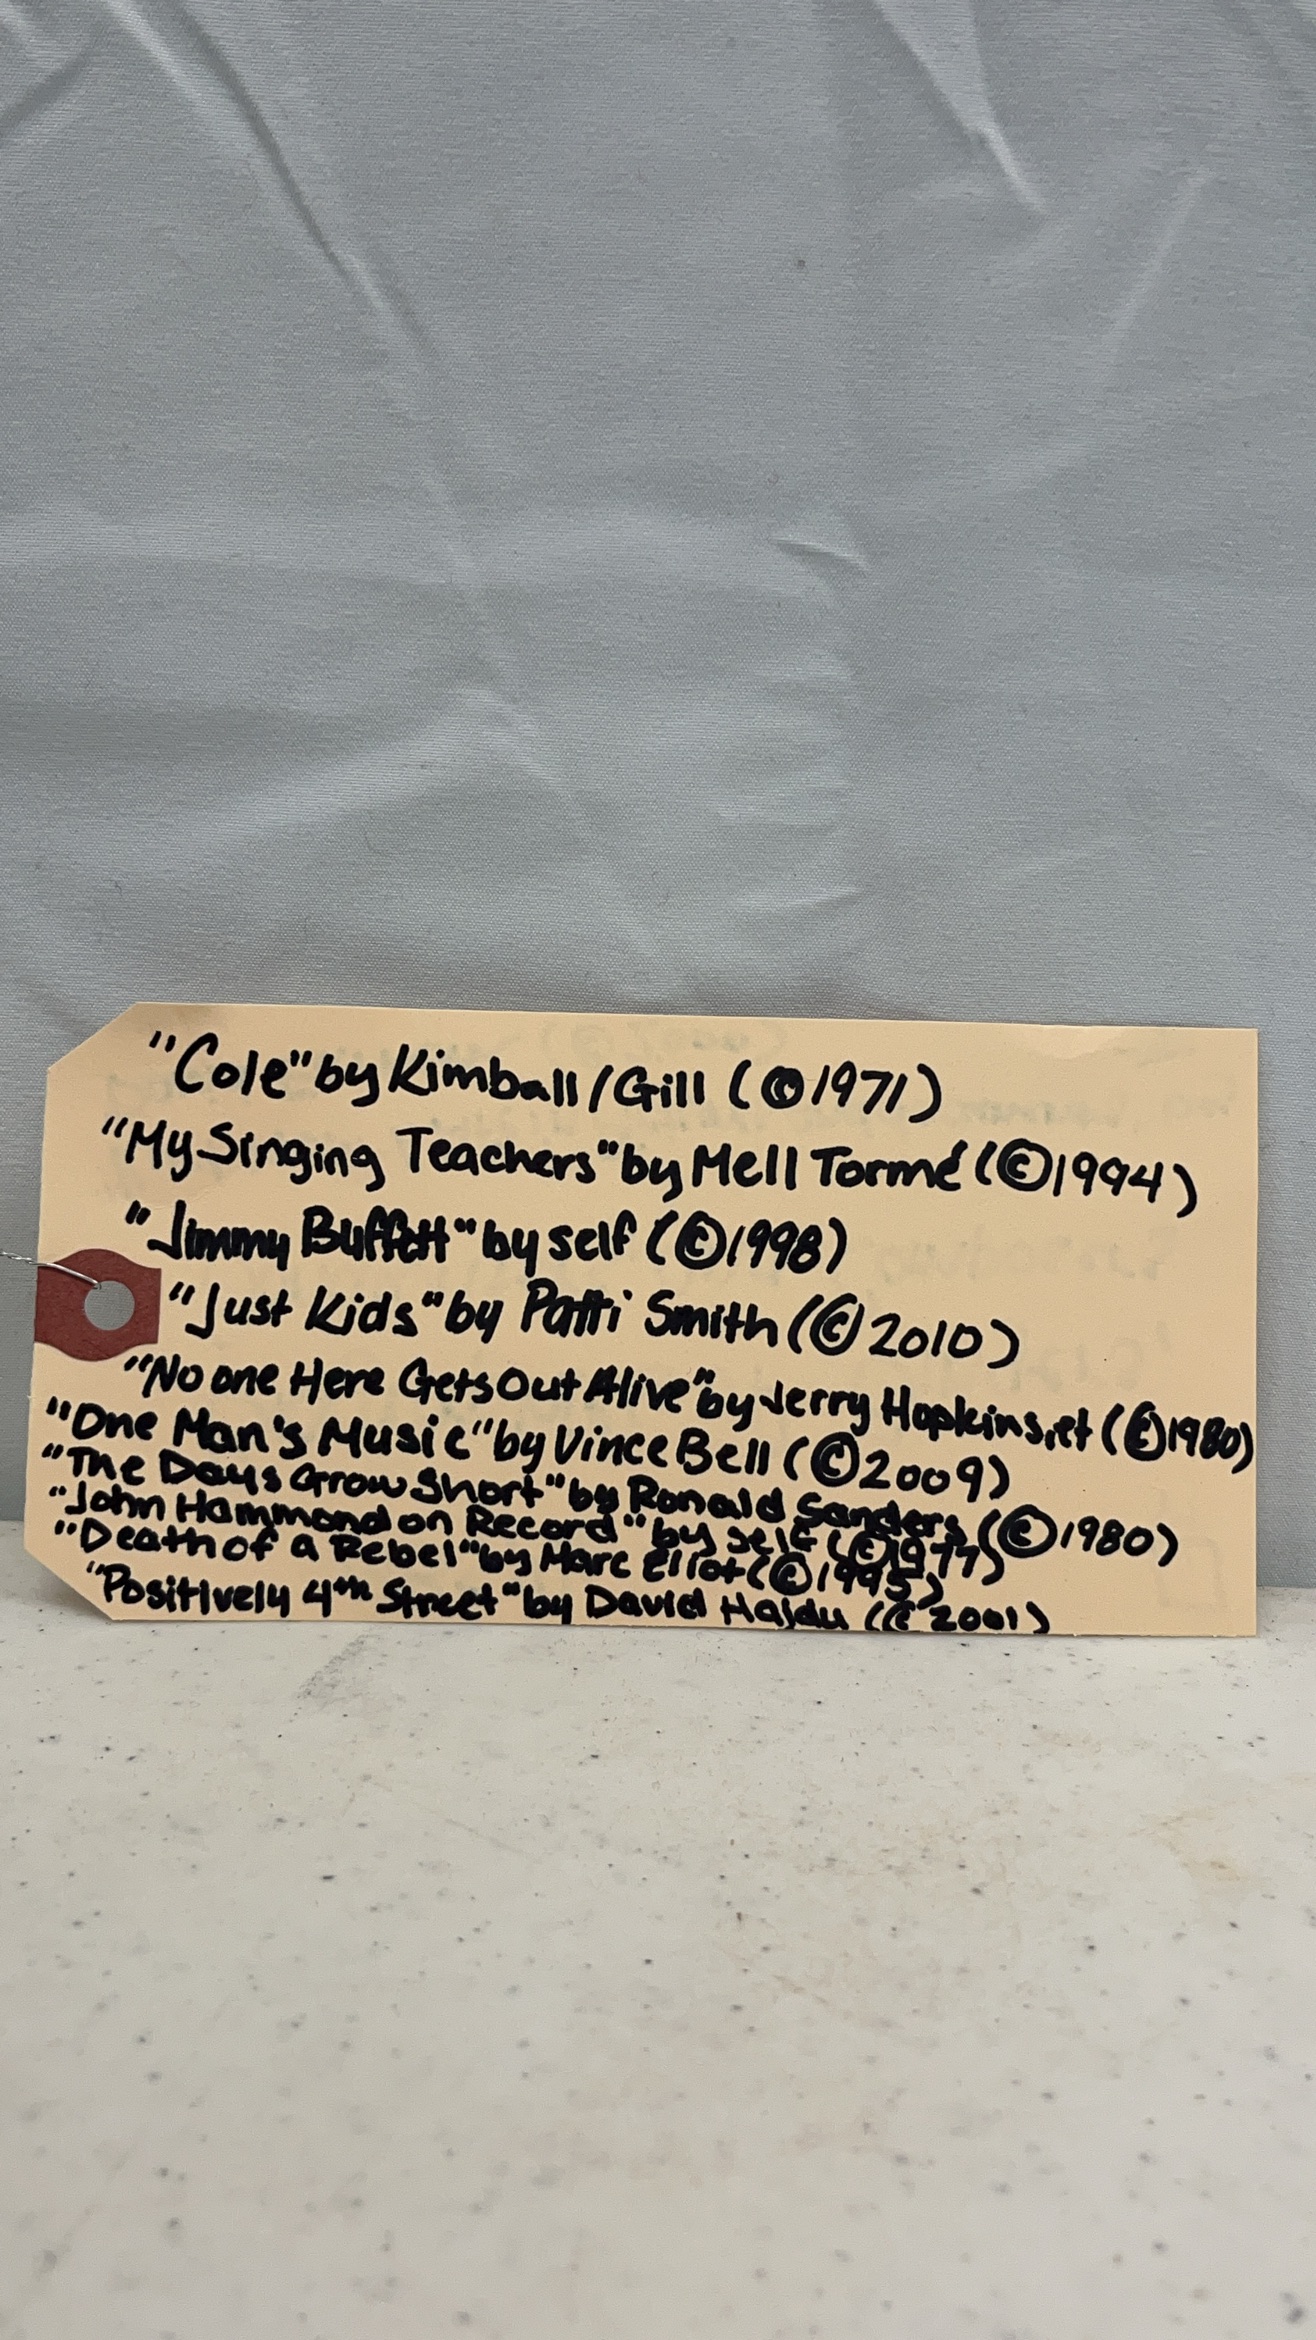 "Cole" by Kimball/Gill (©1971)
"My Singing Teachers" by Mell Tormé (©1994)
"Jimmy Buffett" by self (©1998)
"Just Kids" by Patti Smith (©2010)
"No one Here Gets Out Alive" by Jerry Hopkins, et (©1980)
"One Man's Music" by Vince Bell (©2009)
"The Days Grow Short" by Ronald Sanders (©1980)
"John Hammond on Record" by self (©1977)
"Death of a Rebel" by Marc Eliot (©1995)
"Positively 4th Street" by David Hajdu (© 2001)